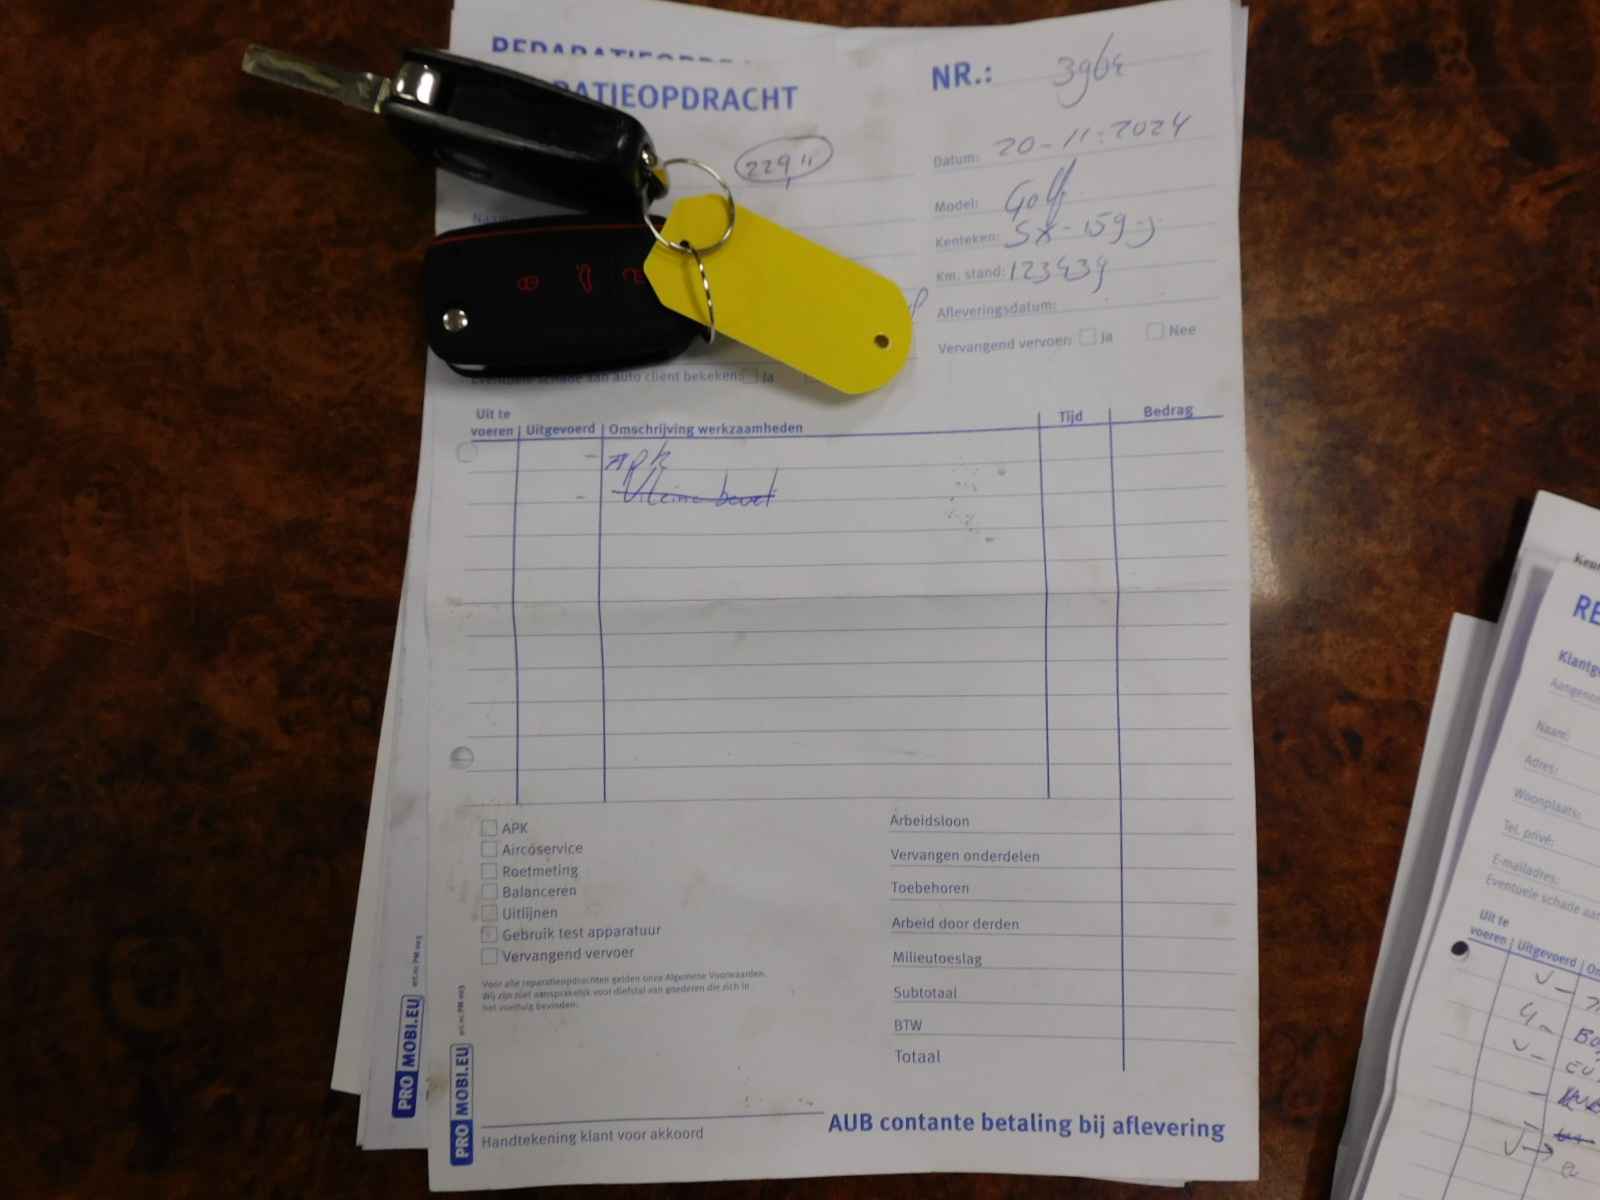 REPARATIEOPDRA
RATIEOPDRACHT
NR.:
Datum: 20-11-2024
Model: Golf
Kenteken: SX-159-J
Km. stand: 123434
Afleveringsdatum:
Vervangend vervoer: Ja Nee
Naam:
Eventuele schade aan auto client bekeken: Ja
Uit te voeren Uitgevoerd Omschrijving werkzaamheden Tijd Bedrag
- APK
-
APK
Aircoservice
Roetmeting
Balanceren
Uitlijnen
Gebruik test apparatuur
Vervangend vervoer
Voor alle reparatieopdrachten gelden onze Algemene Voorwaarden.
Wij zijn niet aansprakelijk voor diefstal van goederen die zich in
het voertuig bevinden.
Arbeidsloon
Vervangen onderdelen
Toebehoren
Arbeid door derden
Milieutoeslag
Subtotaal
BTW
Totaal
Handtekening klant voor akkoord
AUB contante betaling bij aflevering
PRO MOBI.EU
PRO MOBI.EU
RE
Klantge
Aangenom
Naam:
Adres:
Woonplaats:
Tel. privé:
E-mailadres:
Eventuele schade aa
Uit te voeren Uitgevoerd Om